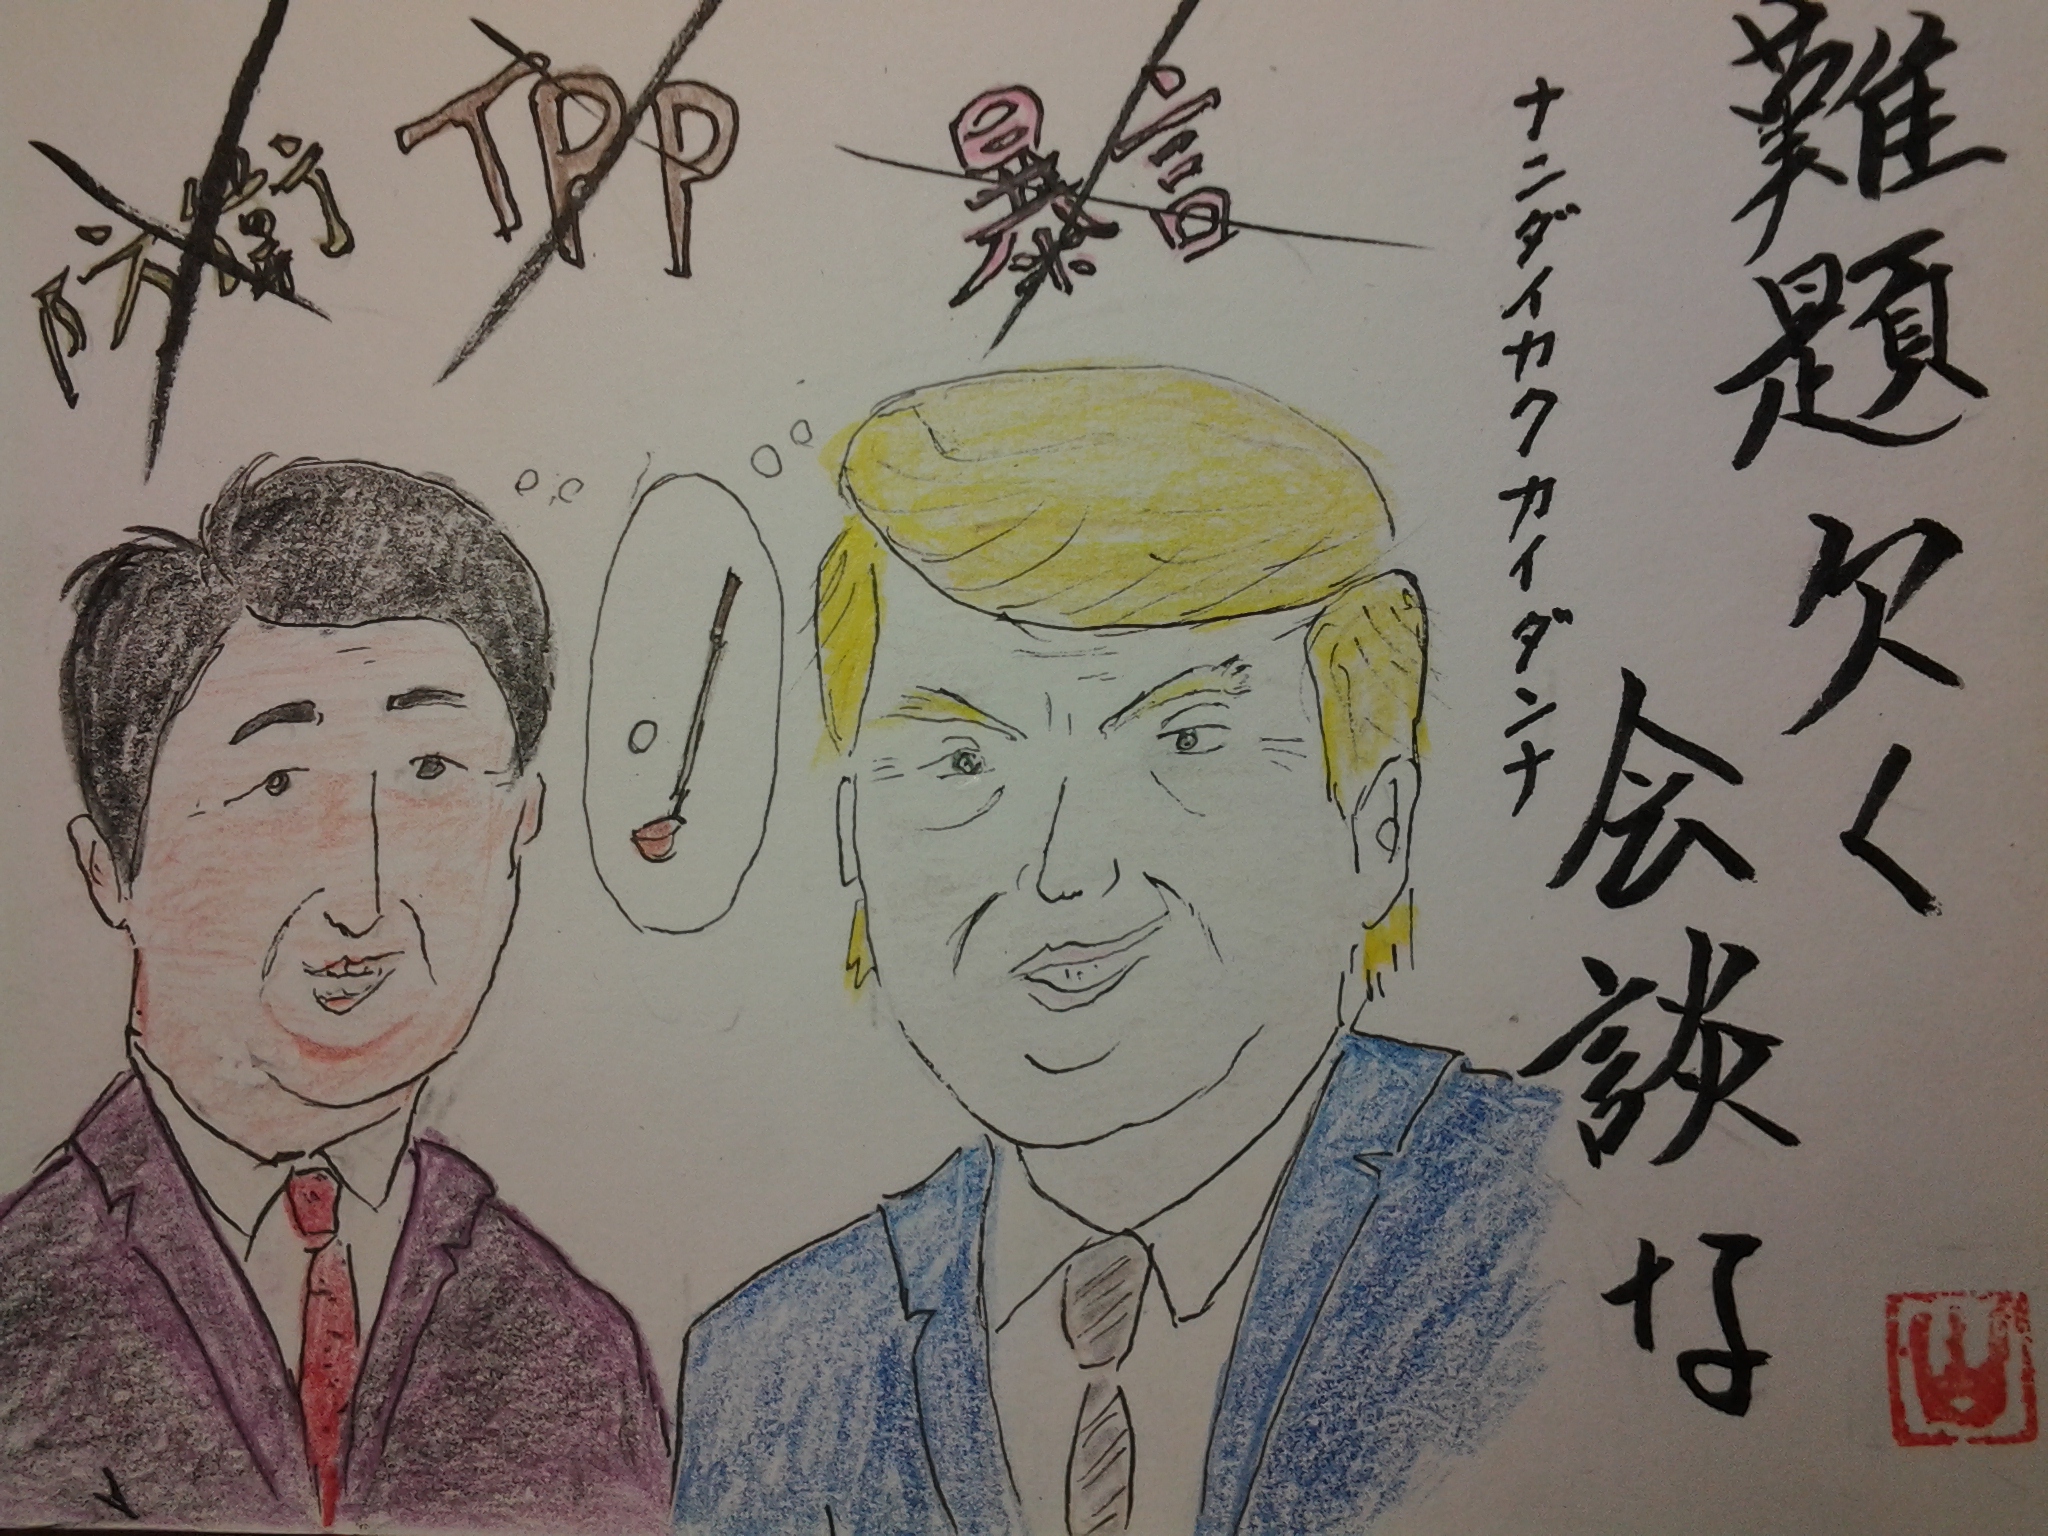 難題欠く
会談な
ナンダイカクカイダンナ
防衛
TPP
暴言